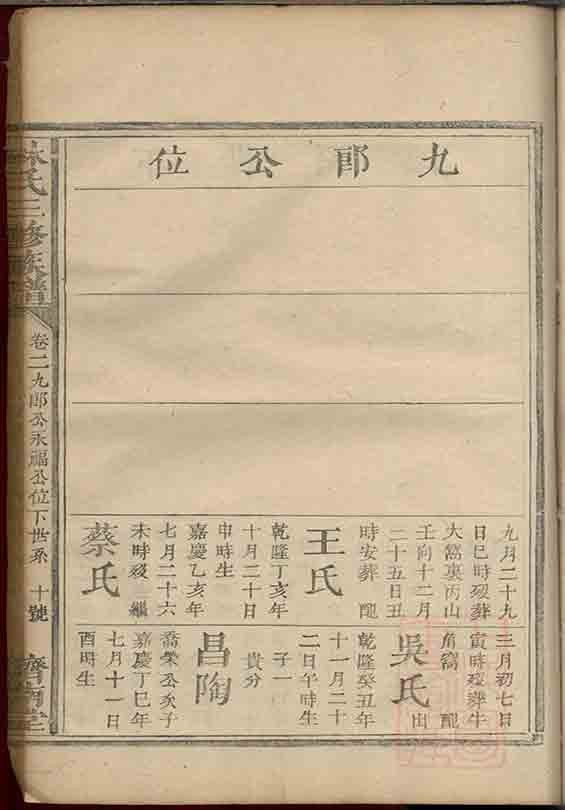 九郎公位
九月二十九
日巳時歿葬
大窩裏丙山
壬向十二月
二十五日丑
時安葬 配
王氏
乾隆丁亥年
十月二十日
申時生
嘉慶乙亥年
七月二十六
未時歿 繼
蔡氏
三月初七日
寅時歿葬牛
角窩 配
吳氏 出
乾隆癸丑年
十一月二十
二日午時生
子一
貴分
昌陶
喬榮公次子
嘉慶丁巳年
七月十一日
酉時生
林氏三修族譜
卷二九郎公永福公位下世系 十號
濟南堂